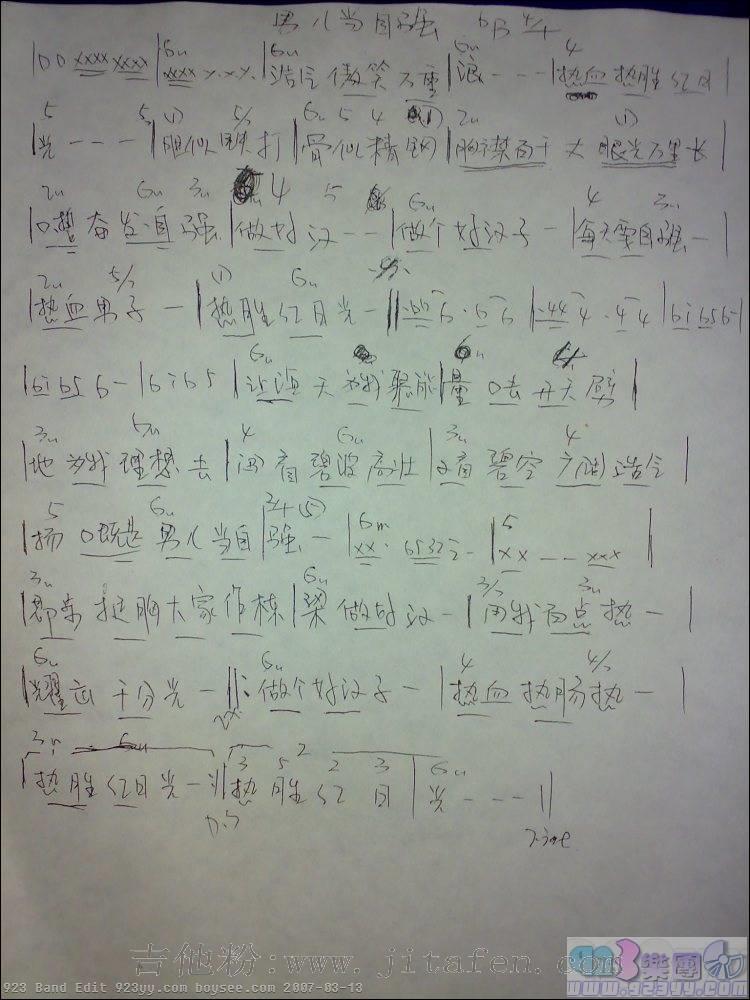 男儿当自强 bB 4/4
|00 xxxx xxxx|6m xxxx x.x.x.|6m 浩气傲笑万重|5m 浪---|4 热血热胜红日|
5 5 (1) 5/7 6m 5 4 (1) 2m (1)
|光---|胆似铁打|骨似精钢|胸襟百千丈眼光万里长|
2m 6m 3m 4 5 6m 4 3m
|口甘奋发自强|做好汉--|做个好汉子-|每天要自强-|
2m 5/7 (1) 6m
|热血男子-|热胜红日光-|
6m 6m
|让海天为我聚能|量口去开天辟|
3m 5m 4 6m 3m 4
|地为我理想去|闯看碧波高壮|又看碧空广阔浩气|
5 6m 2/4 (5) 6m 5
|扬口既是男儿当自|强-|xx. 6532|xx--xxx|
3m 6m 3/7 3m
|昂步挺胸大家作栋|梁做好汉-|用我百点热-|
6m 6m 4 4/5
|耀出千分光-|:做个好汉子-|热血热肠热-|
3m 6m 2
|热胜红日光-:|热胜红日|光---||
3 5 2 3 6m
D.S
Fine
吉他粉:www.jitafen.com
樂團
www.923yy.com
923 Band Edit 923yy.com boysee.com 2007-03-13